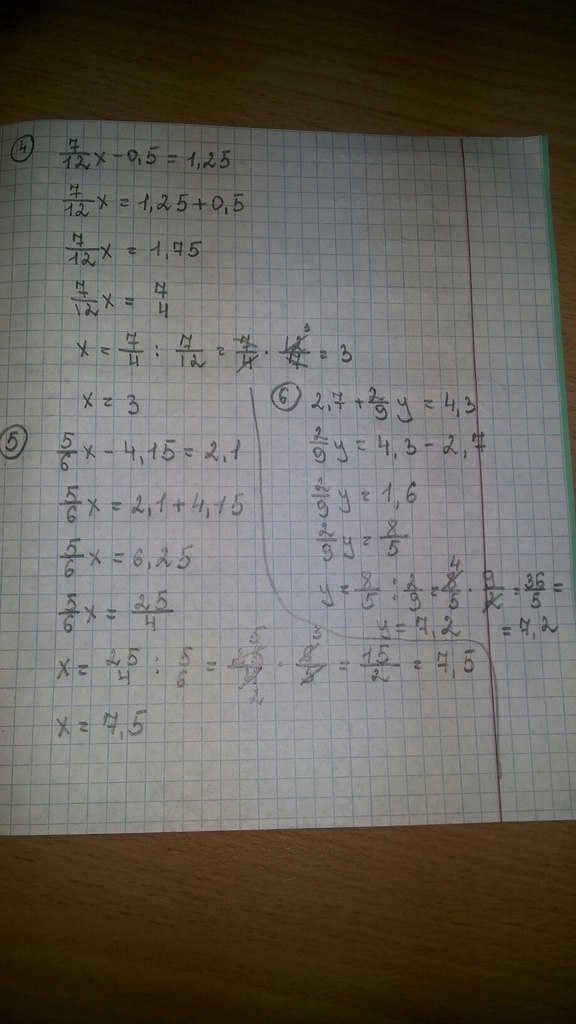 ④ 7/12 x - 0,5 = 1,25
7/12 x = 1,25 + 0,5
7/12 x = 1,75
7/12 x = 7/4
x = 7/4 : 7/12 = 7/4 · 12³/7 = 3
x = 3
⑤ 5/6 x - 4,15 = 2,1
5/6 x = 2,1 + 4,15
5/6 x = 6,25
5/6 x = 25/4
x = 25/4 : 5/6 = = 15/2 = 7,5
x = 7,5
⑥ 2,7 + 2/9 y = 4,3
2/9 y = 4,3 - 2,7
2/9 y = 1,6
2/9 y = 8/5
y = 8/5 : 2/9 = 8⁴/5 · 9/2 = 36/5 =
y = 7,2 = 7,2